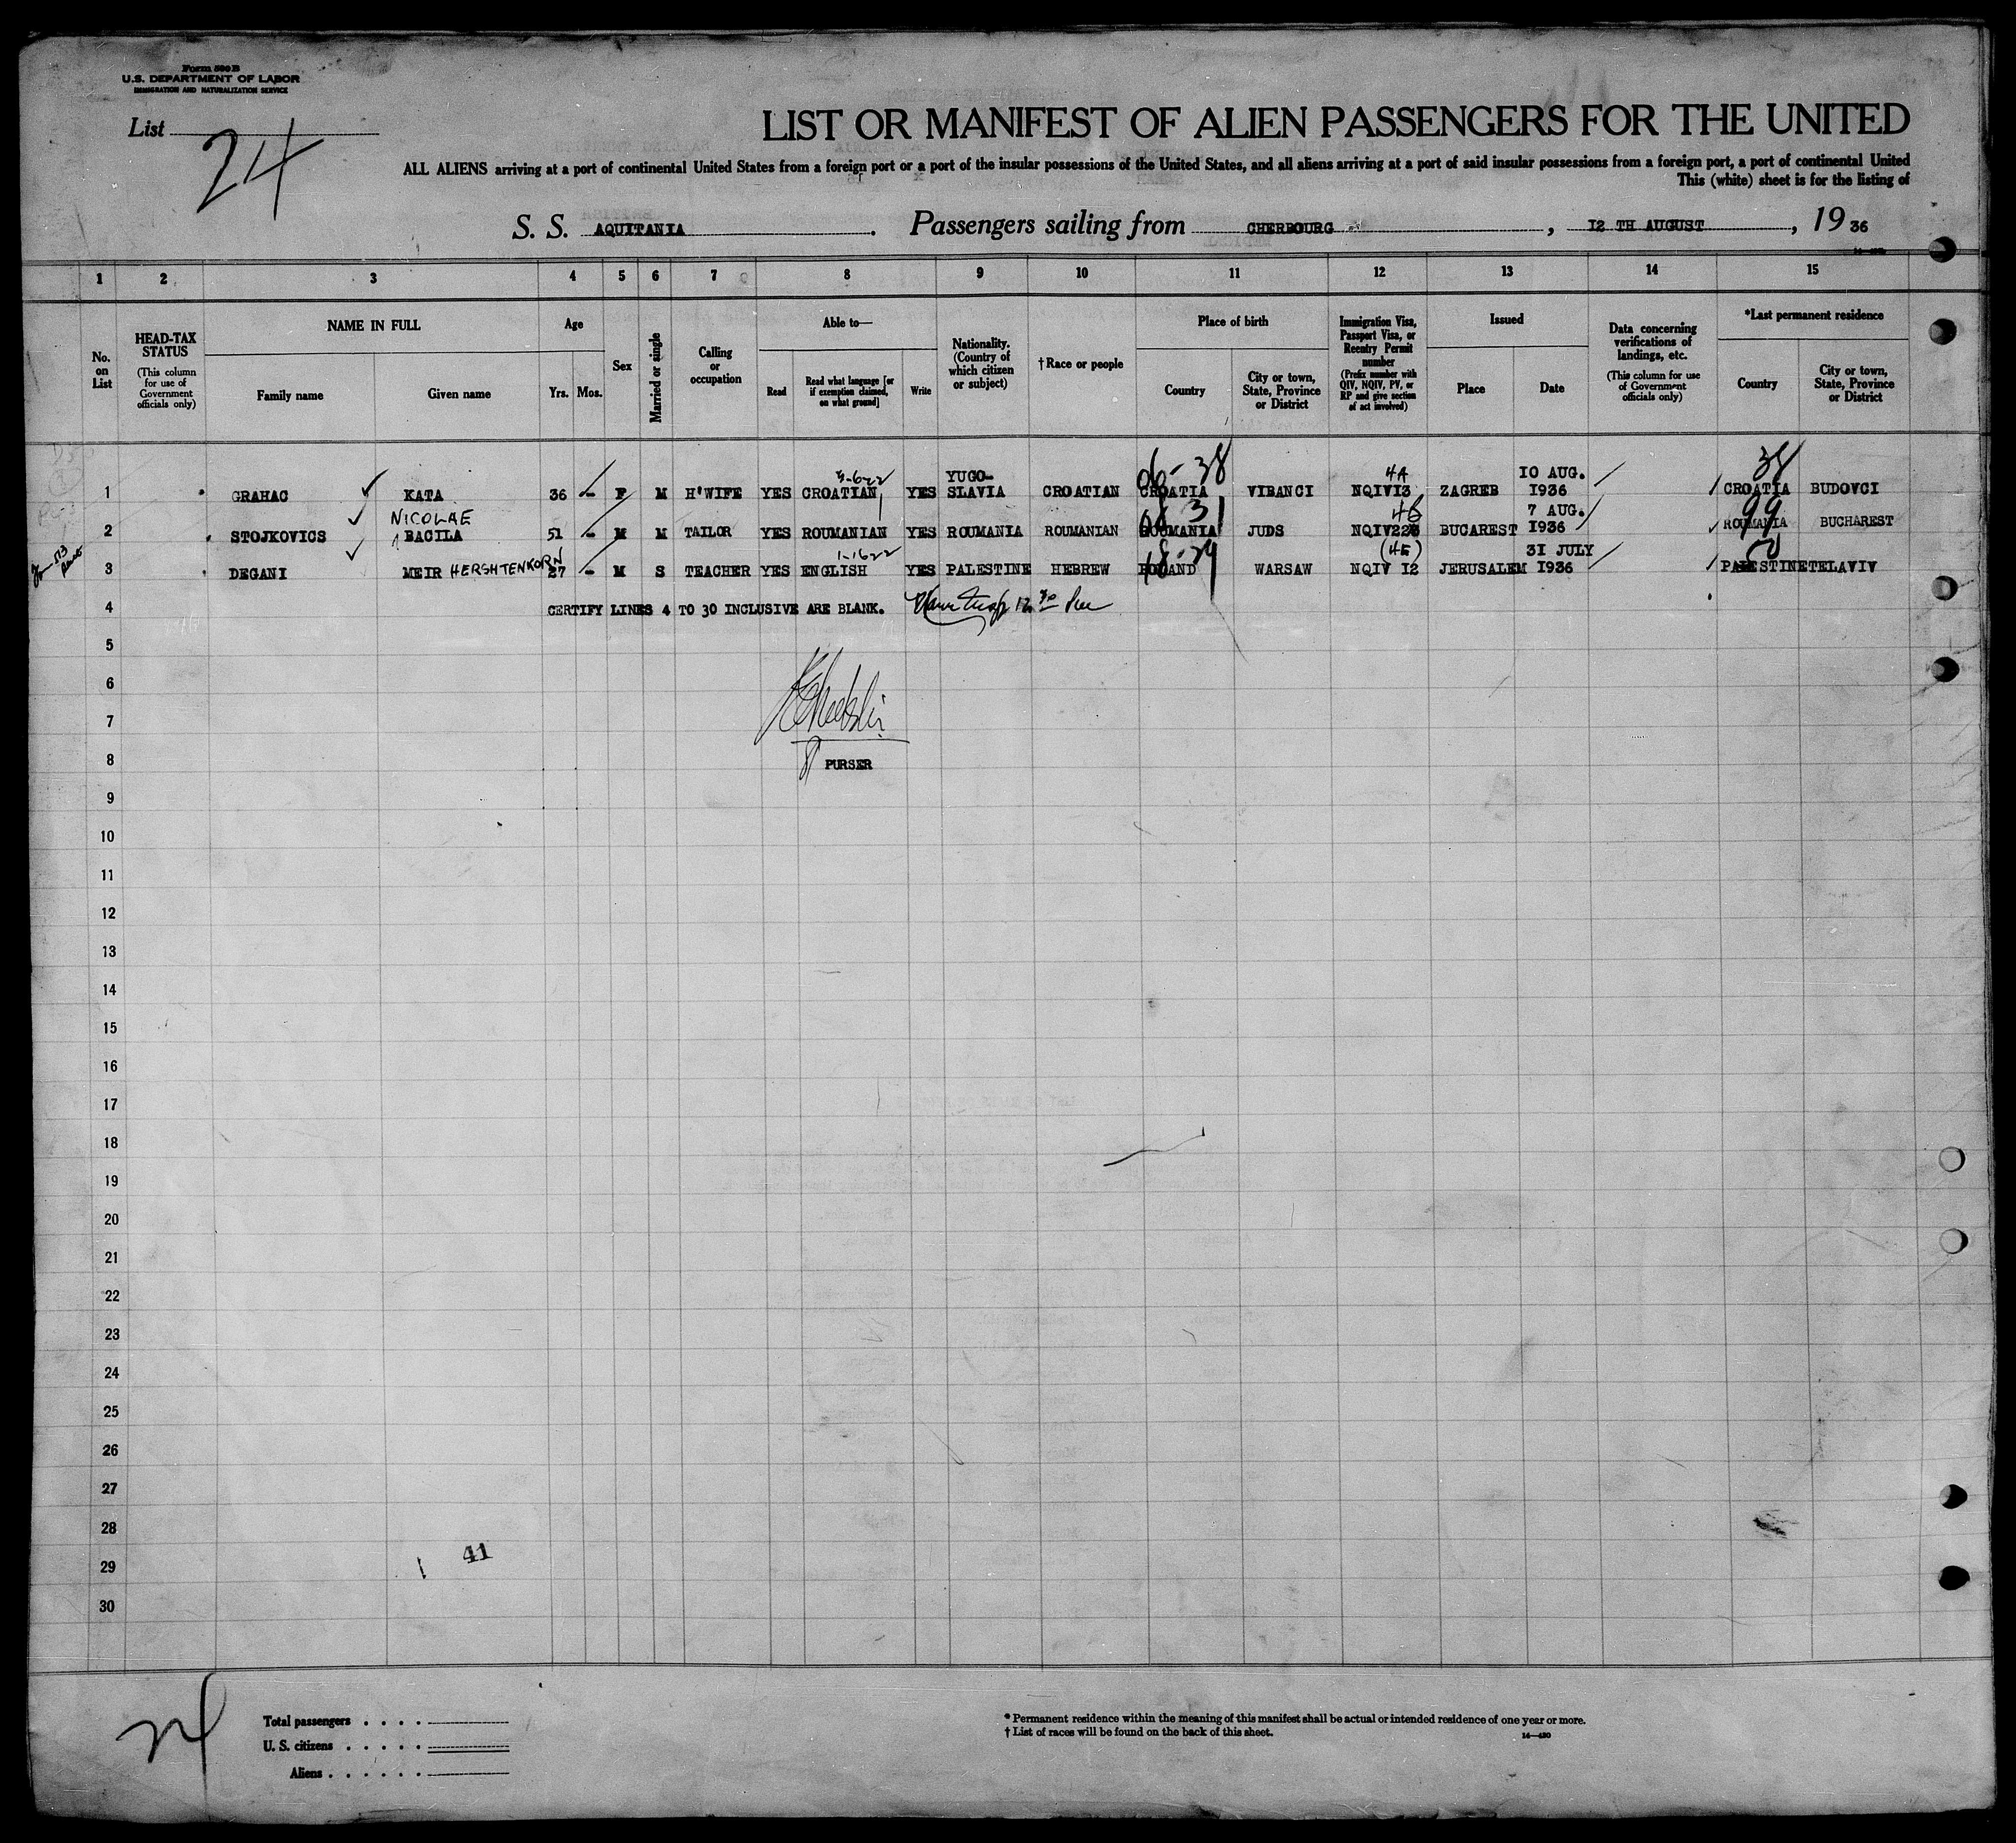 Form 500 B
U.S. DEPARTMENT OF LABOR
IMMIGRATION AND NATURALIZATION SERVICE
List 24
LIST OR MANIFEST OF ALIEN PASSENGERS FOR THE UNITED
ALL ALIENS arriving at a port of continental United States from a foreign port or a port of the insular possessions of the United States, and all aliens arriving at a port of said insular possessions from a foreign port, a port of continental United
This (white) sheet is for the listing of
S. S. AQUITANIA. Passengers sailing from CHERBOURG, 12 TH AUGUST, 19 36
1 2 3 4 5 6 7 8 9 10 11 12 13 14 15
No. on List
HEAD-TAX STATUS
(This column for use of Government officials only)
NAME IN FULL
Family name
Given name
Age
Yrs. Mos.
Sex
Married or single
Calling or occupation
Able to—
Read
Read what language [or if exemption claimed, on what ground]
Write
Nationality. (Country of which citizen or subject)
† Race or people
Place of birth
Country
City or town, State, Province or District
Immigration Visa, Passport Visa, or Reentry Permit number
(Prefix number with QIV, NQIV, PV, or RP and give section of act involved)
Issued
Place
Date
Data concerning verifications of landings, etc.
(This column for use of Government officials only)
*Last permanent residence
Country
City or town, State, Province or District
3-622 YUGO- 06-38 4A 10 AUG. 38
1 GRAHAC KATA 36 - F M H'WIFE YES CROATIAN YES SLAVIA CROATIAN CROATIA VIBANCI NQIV13 ZAGREB 1936 CROATIA BUDOVCI
NICOLAE 31 7 AUG. 99
2 STOJKOVICS BACILA 51 - M M TAILOR YES ROUMANIAN YES ROUMANIA ROUMANIAN ROUMANIA JUDS NQIV226 BUCAREST 1936 ROUMANIA BUCHAREST
1-1622 (4E) 31 JULY 50
3 DEGANI MEIR HERSHTENKORN 27 - M S TEACHER YES ENGLISH YES PALESTINE HEBREW POLAND WARSAW NQIV 12 JERUSALEM 1936 PALESTINE TELAVIV
4 CERTIFY LINES 4 TO 30 INCLUSIVE ARE BLANK.
5
6
7
8 PURSER
9
10
11
12
13
14
15
16
17
18
19
20
21
22
23
24
25
26
27
28
29 41
30
24
Total passengers . . . .
U. S. citizens . . . . .
Aliens . . . . . .
* Permanent residence within the meaning of this manifest shall be actual or intended residence of one year or more.
† List of races will be found on the back of this sheet.
14—430